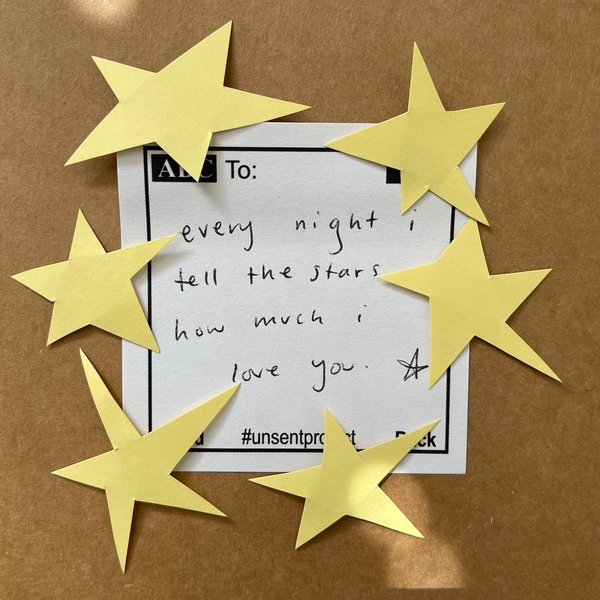 ABC To:
every night i
tell the stars
how much i
love you.
#unsentproject